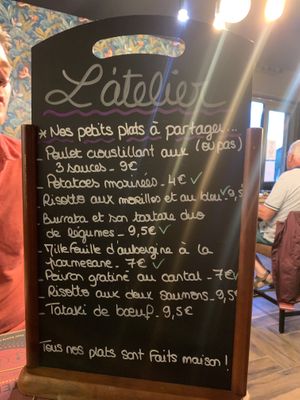 L'atelier
* Nos petits plats à partager... (ou pas)
- Poulet croustillant aux
3 sauces - 9€
- Potatoes marinées - 4€ ✓
- Risotto aux morilles et au bleu ✓ 9,5
- Burrata et son tartare duo
de légumes - 9,5€ ✓
- Millefeuille d'aubergine à la
parmesane - 7€ ✓
- Poivron gratiné au cantal - 7€ ✓
- Risotto aux deux saumons - 9,5€
- Tataki de bœuf - 9,5€
Tous nos plats sont faits maison !